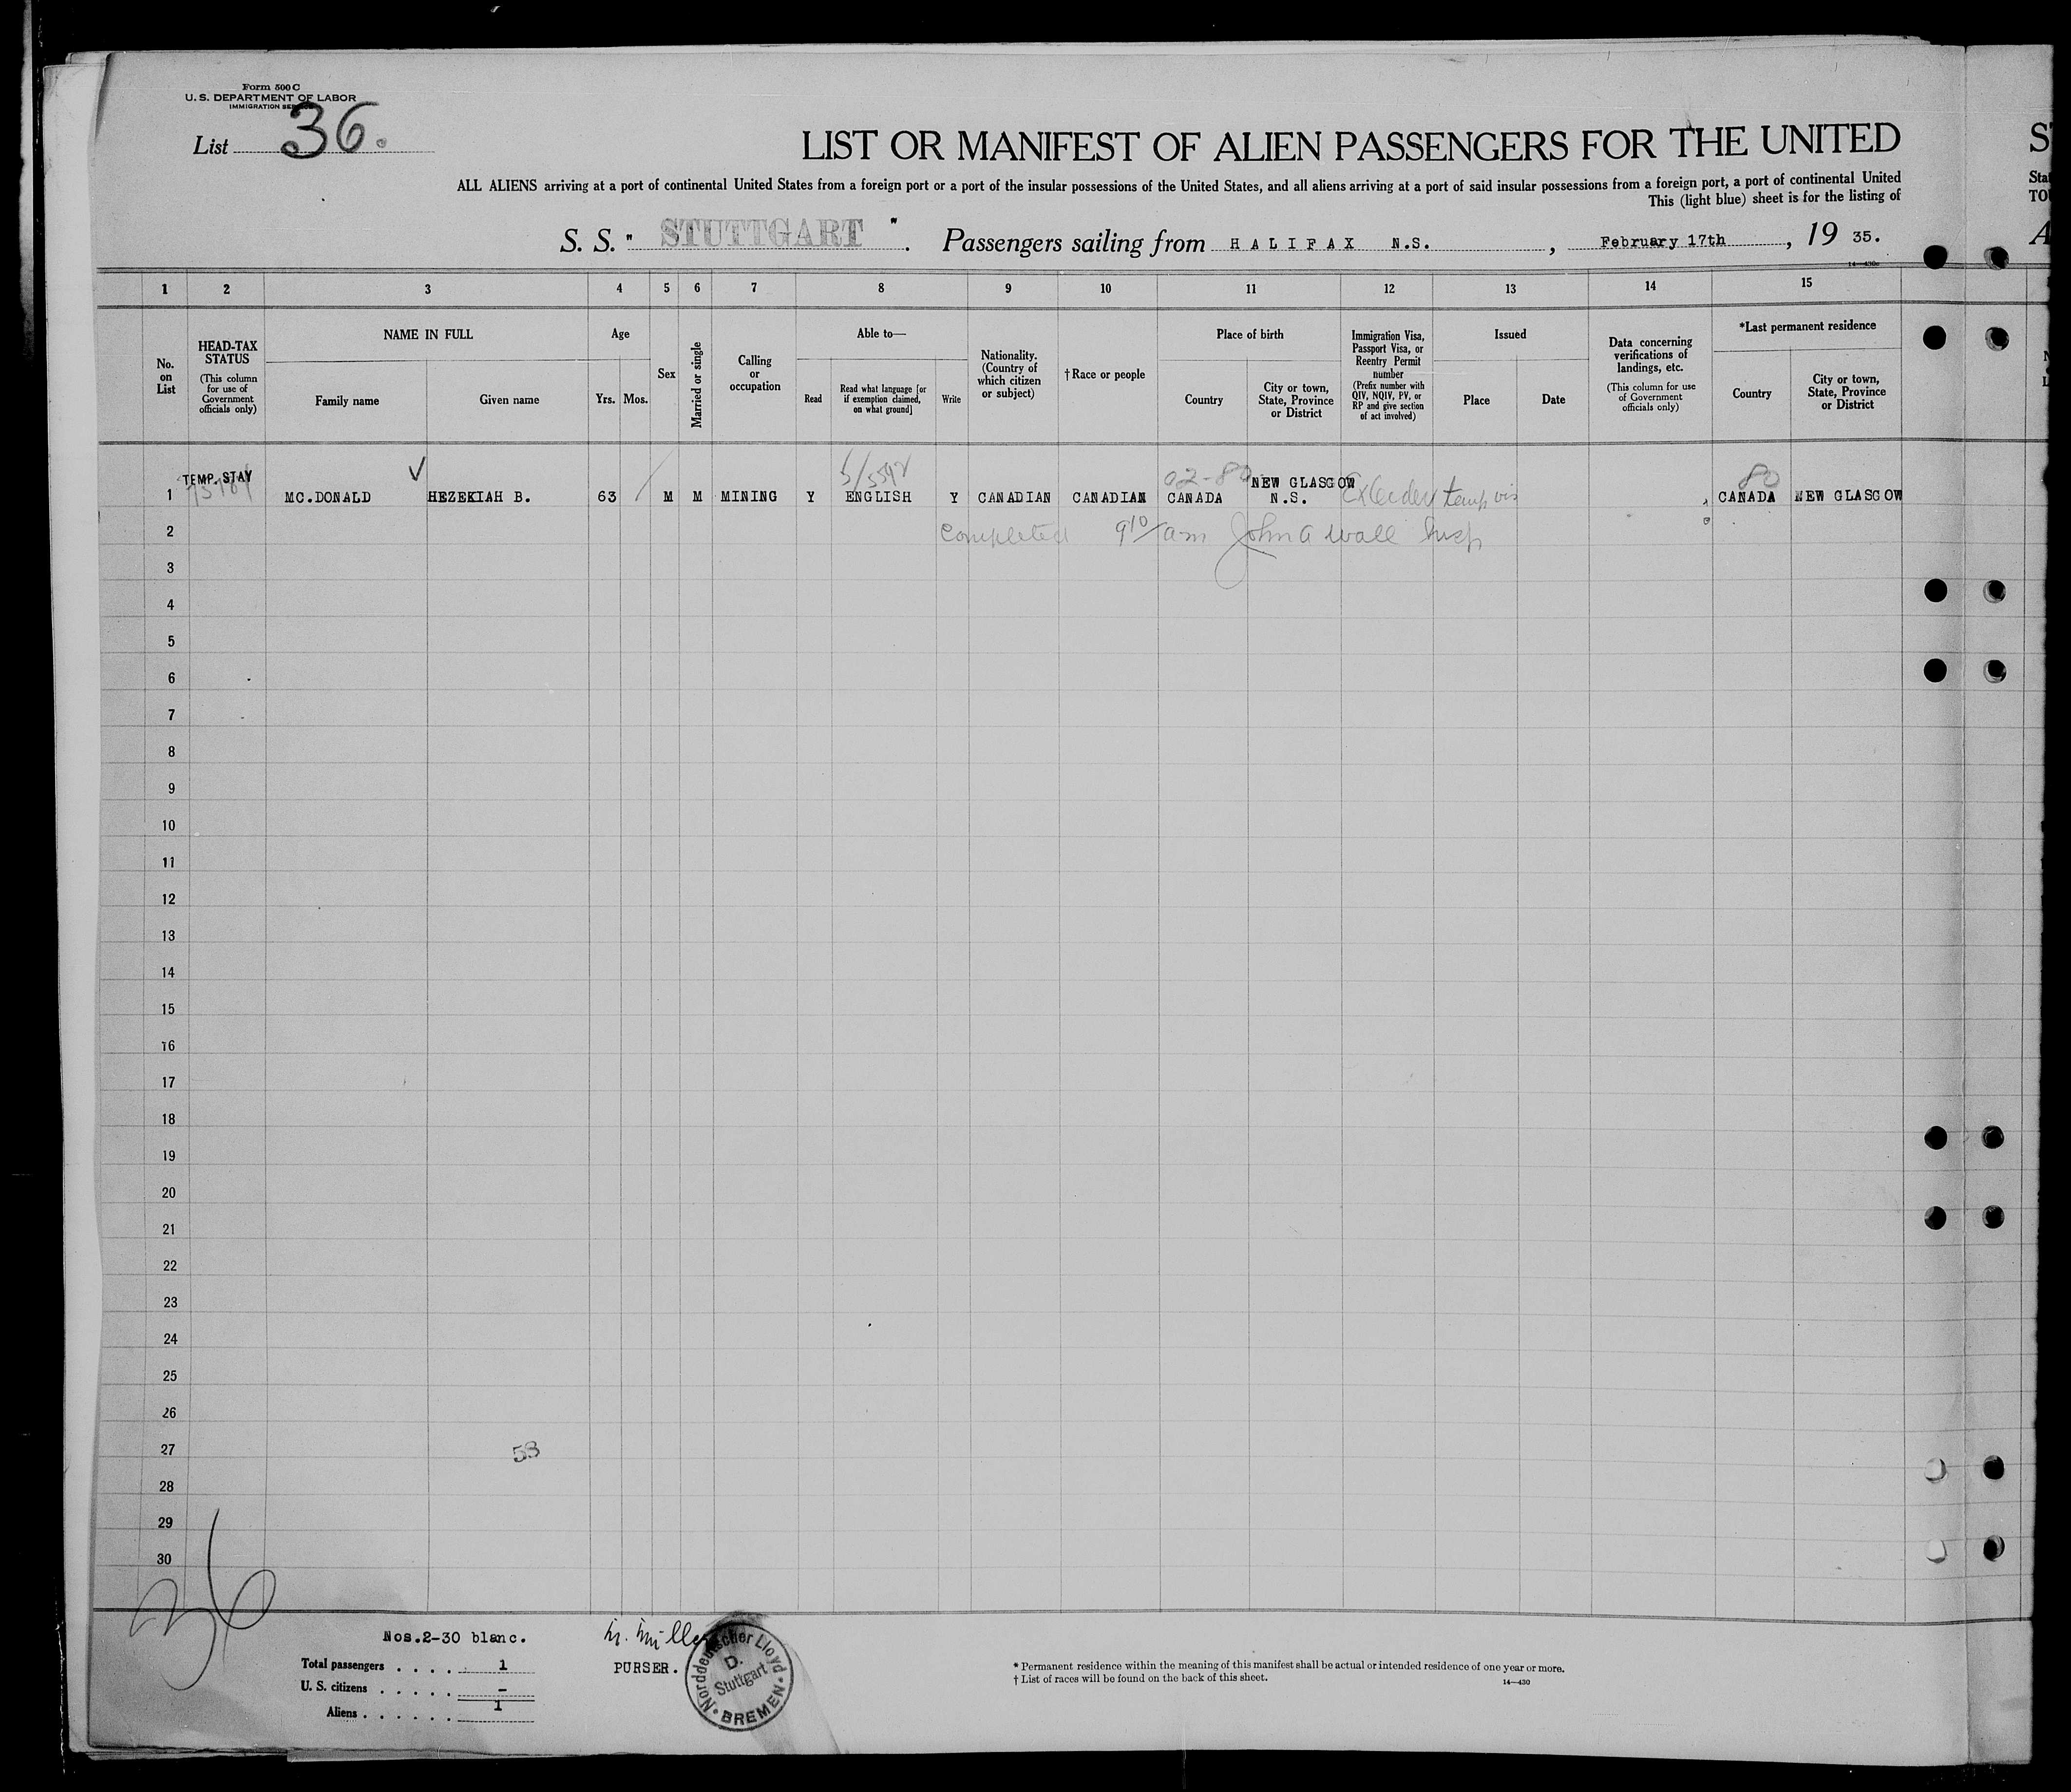 Form 500 C
U. S. DEPARTMENT OF LABOR
IMMIGRATION
List 36.
LIST OR MANIFEST OF ALIEN PASSENGERS FOR THE UNITED
ALL ALIENS arriving at a port of continental United States from a foreign port or a port of the insular possessions of the United States, and all aliens arriving at a port of said insular possessions from a foreign port, a port of continental United
This (light blue) sheet is for the listing of
S. S. " STUTTGART ". Passengers sailing from HALIFAX N.S., February 17th, 19 35.
1 2 3 4 5 6 7 8 9 10 11 12 13 14 15
No. on List
HEAD-TAX STATUS (This column for use of Government officials only)
NAME IN FULL
Family name
Given name
Age
Yrs. Mos.
Sex
Married or single
Calling or occupation
Able to—
Read
Read what language [or if exemption claimed, on what ground]
Write
Nationality. (Country of which citizen or subject)
†Race or people
Place of birth
Country
City or town, State, Province or District
Immigration Visa, Passport Visa, or Reentry Permit number (Prefix number with QIV, NQIV, PV, or RP and give section of act involved)
Issued
Place
Date
Data concerning verifications of landings, etc. (This column for use of Government officials only)
*Last permanent residence
Country
City or town, State, Province or District
TEMP. STAY
02-80 NEW GLASGOW 80
1 MC.DONALD HEZEKIAH B. 63 M M MINING Y ENGLISH Y CANADIAN CANADIAN CANADA N.S. temp vis CANADA NEW GLASGOW
2 Completed 9 10/am John A Wall Insp
3
4
5
6
7
8
9
10
11
12
13
14
15
16
17
18
19
20
21
22
23
24
25
26
27 53
28
29
30
36
Nos.2-30 blanc.
Total passengers . . . . 1
U. S. citizens . . . . . –
Aliens . . . . . . 1
PURSER.
Norddeutscher Lloyd
D. Stuttgart
BREMEN
* Permanent residence within the meaning of this manifest shall be actual or intended residence of one year or more.
† List of races will be found on the back of this sheet.
14—430